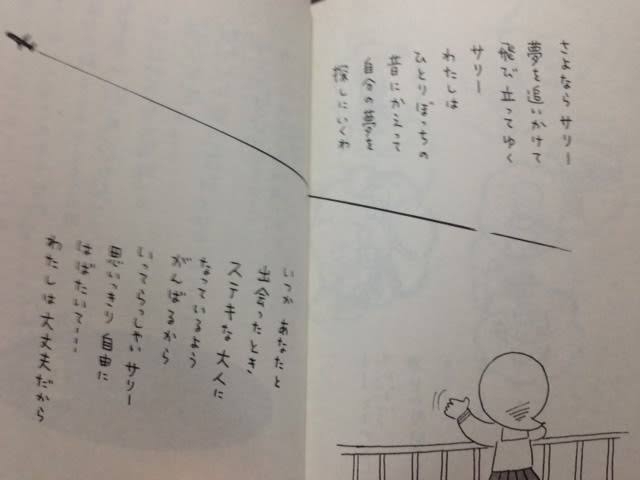 さよなら サリー
夢を追いかけて
飛び立ってゆく
サリー
わたしは
ひとりぼっちの
昔にかえって
自分の夢を
探しにいくわ
いつか あなたと
出会ったとき
ステキな大人に
なっているよう
がんばるから
いってらっしゃい サリー
思いっきり 自由に
はばたいて……
わたしは大丈夫だから